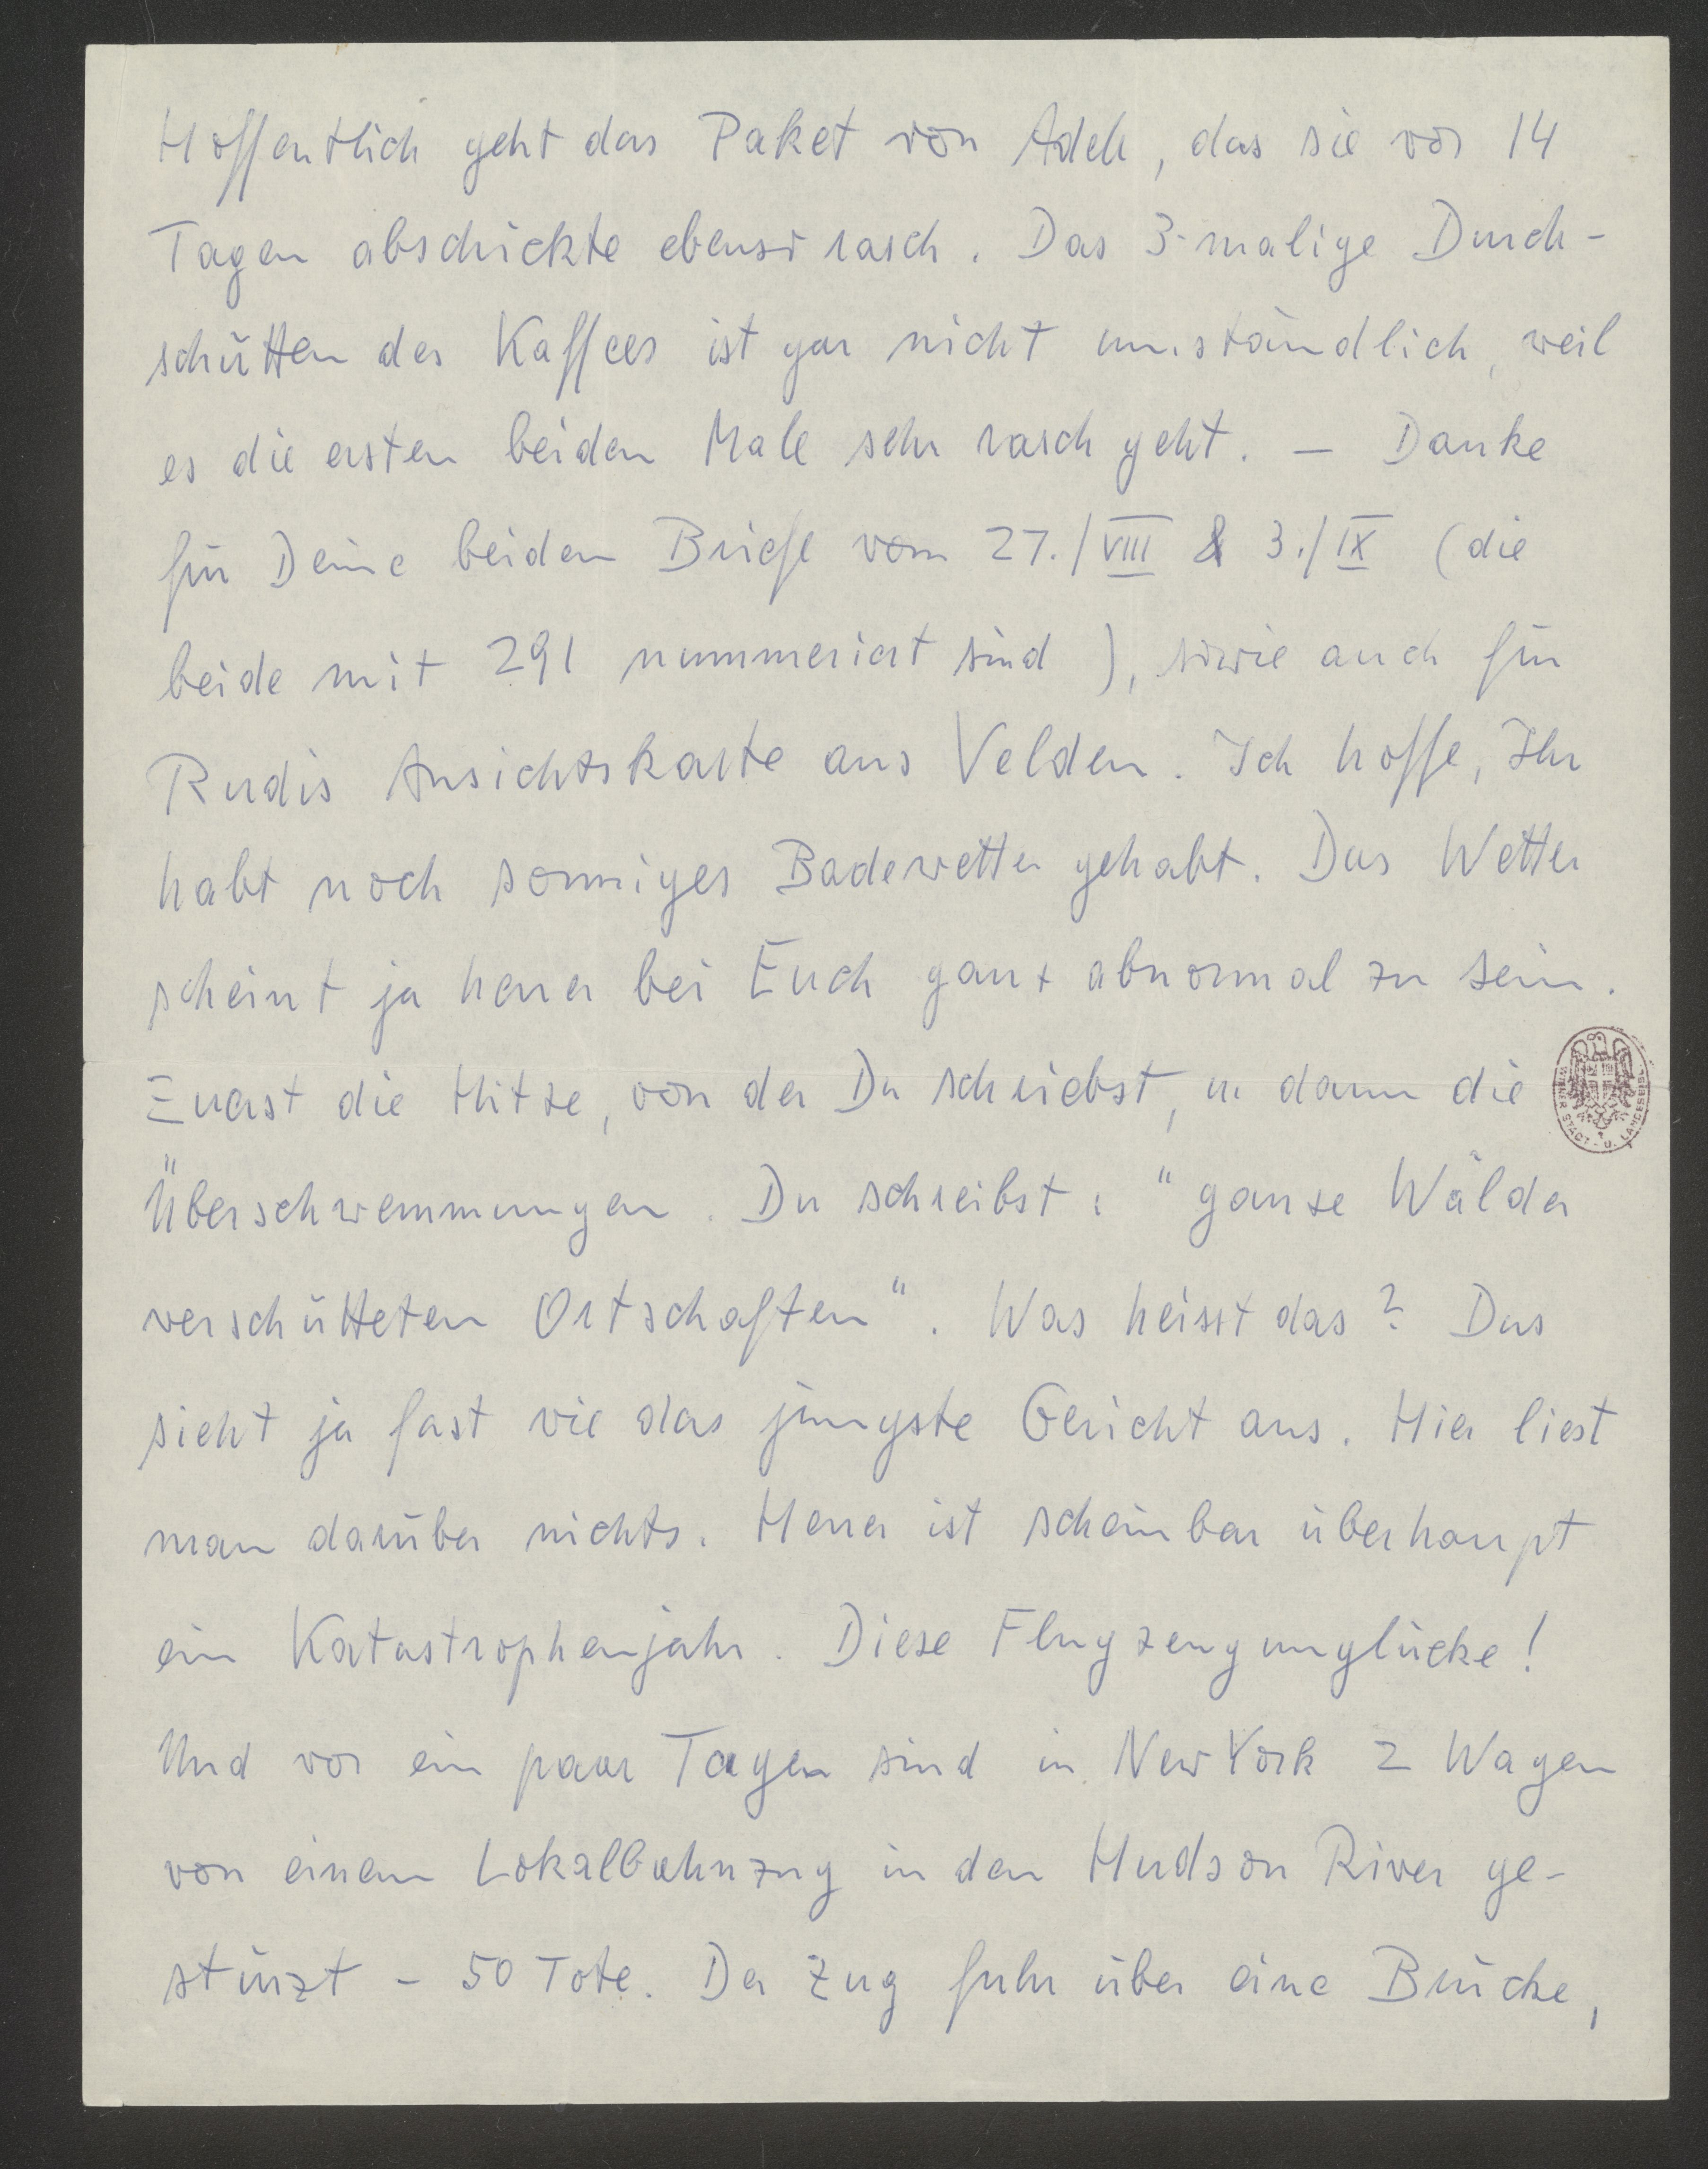 Hoffentlich geht das Paket von Adele, das sie vor 14
Tagen abschickte ebenso rasch. Das 3-malige Durch-
schütten des Kaffees ist gar nicht umständlich, weil
es die ersten beiden Male sehr rasch geht. – Danke
für Deine beiden Briefe vom 27./VIII & 3./IX (die
beide mit 291 nummeriert sind), sowie auch für
Rudis Ansichtskarte aus Velden. Ich hoffe, Ihr
habt noch sonniges Badewetter gehabt. Das Wetter
scheint ja heuer bei Euch ganz abnormal zu sein.
Zuerst die Hitze, von der Du schriebst, u. dann die
Überschwemmungen. Du schreibst: "ganze Wälder
verschütteten Ortschaften". Was heisst das? Das
sieht ja fast wie das jüngste Gericht aus. Hier liest
man darüber nichts. Heuer ist scheinbar überhaupt
ein Katastrophenjahr. Diese Flugzeugunglücke!
Und vor ein paar Tagen sind in New York 2 Wagen
von einem Lokalbahnzug in den Hudson River ge-
stürzt – 50 Tote. Der Zug fuhr über eine Brücke,
WIENER STADT- U. LANDESBIBL.